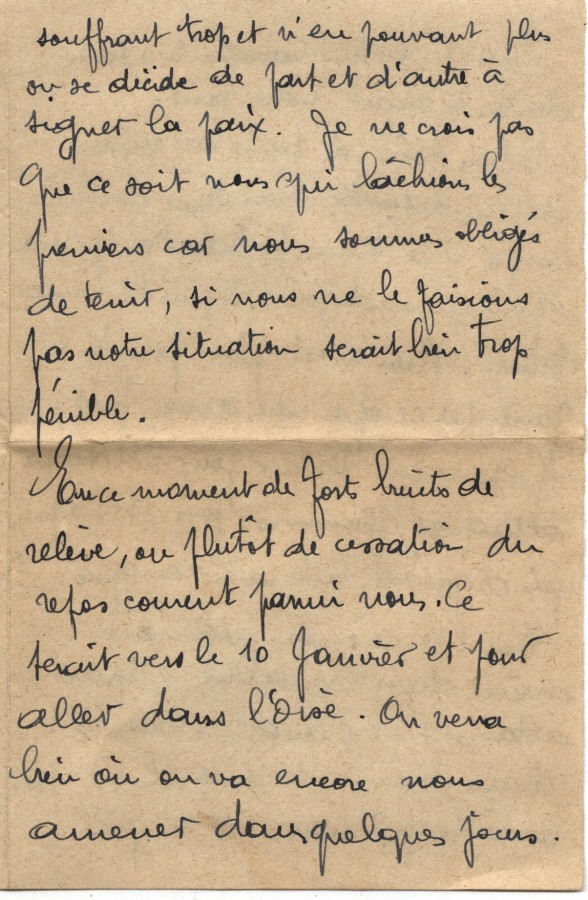 souffrant trop et n'en pouvant plus
on se décide de part et d'autre à
signer la paix. Je ne crois pas
que ce soit nous qui lâchions les
premiers car nous sommes obligés
de tenir, si nous ne le faisions
pas notre situation serait bien trop
pénible.
En ce moment de forts bruits de
relève, ou plutôt de cessation du
repos courent parmi nous. Ce
serait vers le 10 Janvier et pour
aller dans l'Oise. On verra
bien où on va encore nous
amener dans quelques jours.